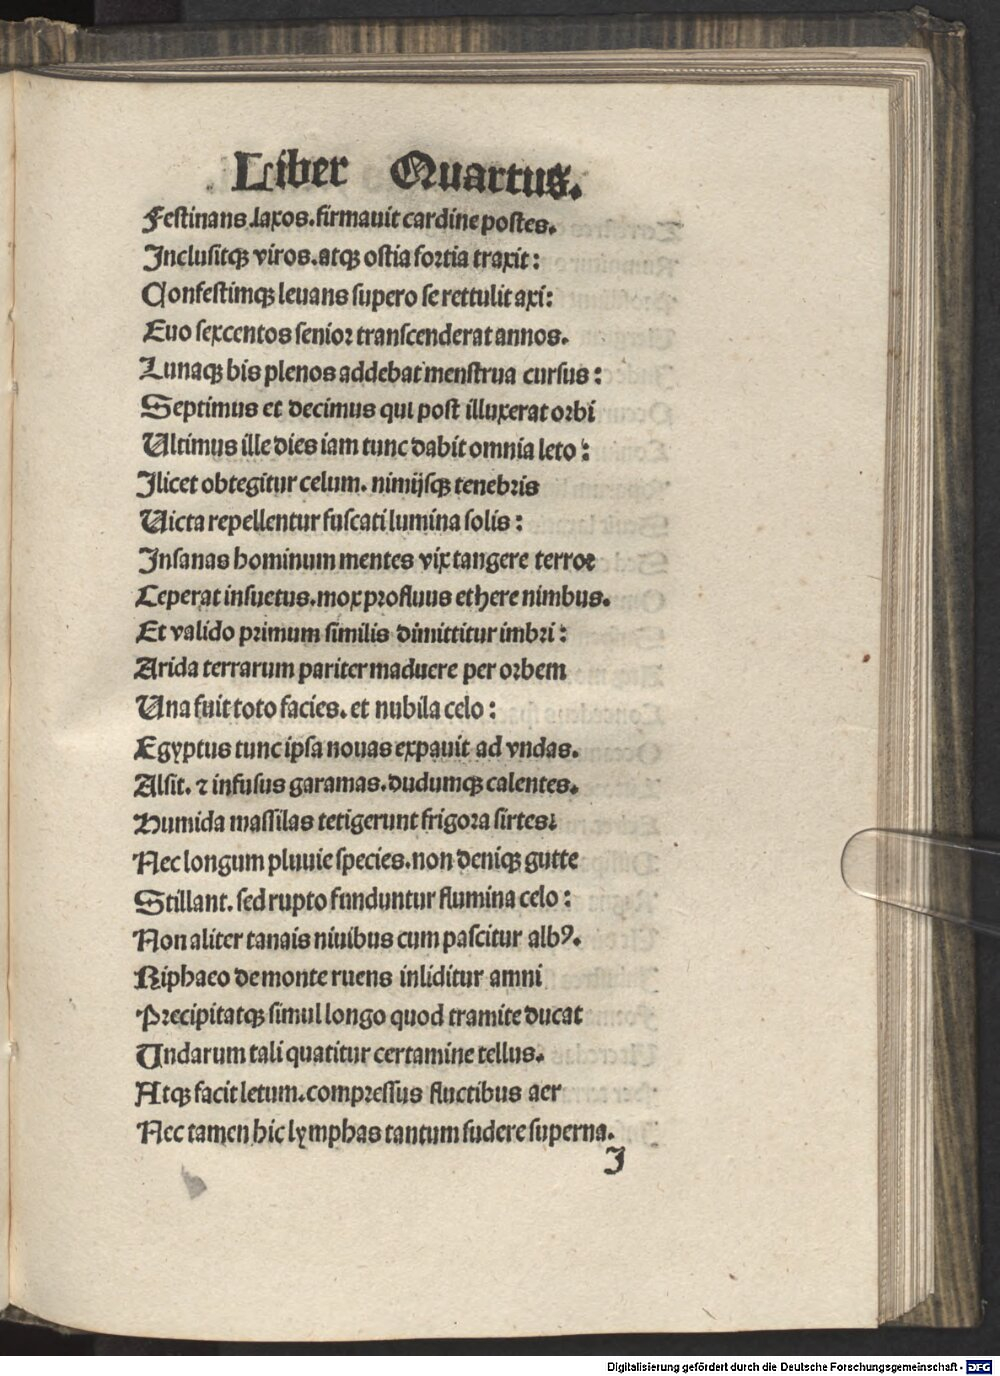 Liber Quartus.
Festinans.laxos.firmauit cardine postes.
Inclusitqꝫ viros.atqꝫ ostia fortia traxit:
Confestimqꝫ leuans supero se rettulit axi:
Euo sexcentos senior transcenderat annos.
Lunaqꝫ bis plenos addebat menstrua cursus:
Septimus et decimus qui post illuxerat orbi
Ultimus ille dies iam tunc dabit omnia leto:
Ilicet obtegitur celum. nimijsqꝫ tenebris
Uicta repellentur fuscati lumina solis:
Insanas hominum mentes vix tangere terror
Ceperat insuetus.mox profluus ethere nimbus.
Et valido primum similis dimittitur imbri:
Arida terrarum pariter maduere per orbem
Una fuit toto facies. et nubila celo:
Egyptus tunc ipsa nouas expauit ad vndas.
Alsit. ⁊ infusus garamas.dudumqꝫ calentes.
Humida massilas tetigerunt frigora sirtes:
Nec longum pluuie species.non deniqꝫ gutte
Stillant. sed rupto funduntur flumina celo:
Non aliter tanais niuibus cum pascitur albꝰ.
Riphaeo de monte ruens inliditur amni
Precipitatqꝫ simul longo quod tramite ducat
Undarum tali quatitur certamine tellus.
Atqꝫ facit letum.compressus fluctibus aer
Nec tamen hic lymphas tantum sudere superna.
I
Digitalisierung gefördert durch die Deutsche Forschungsgemeinschaft - DFG